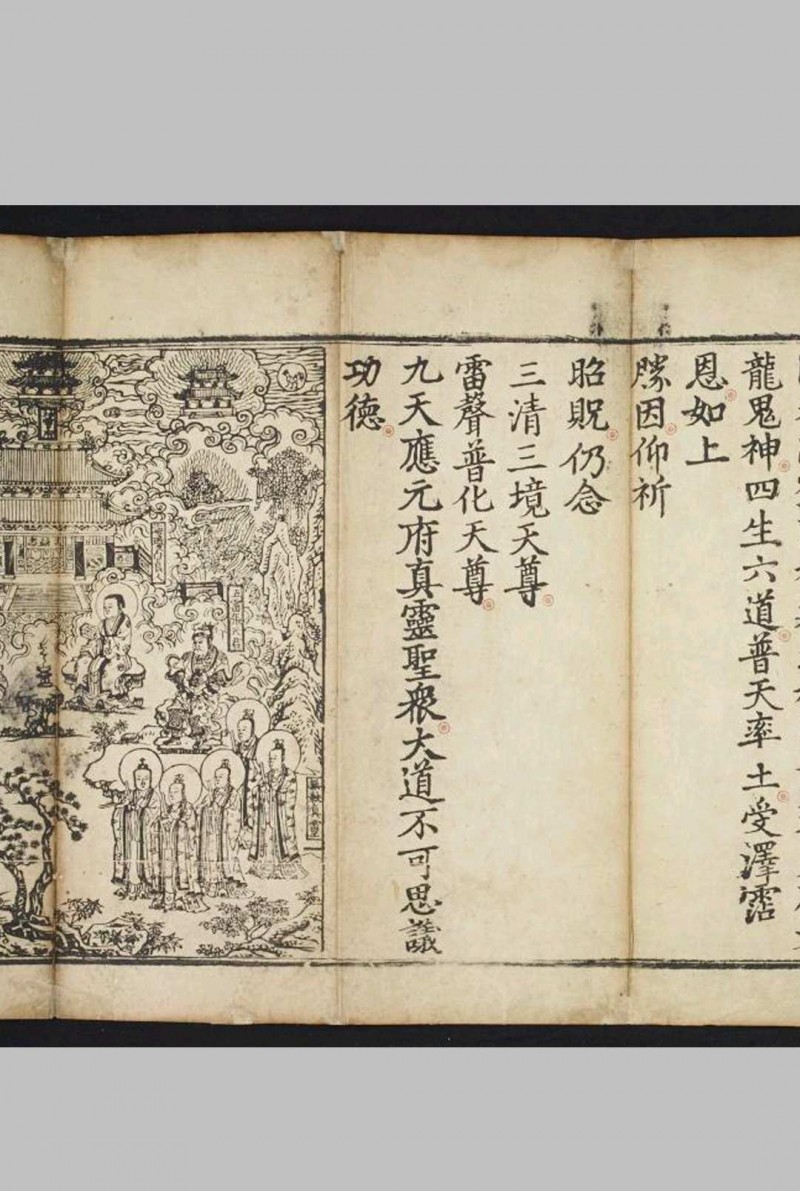 龍鬼神四生六道普天率土受澤霑
恩如上
勝因仰祈
昭貺仍念
三清三境天尊
雷聲普化天尊
九天應元府真靈聖衆大道不可思議
功德